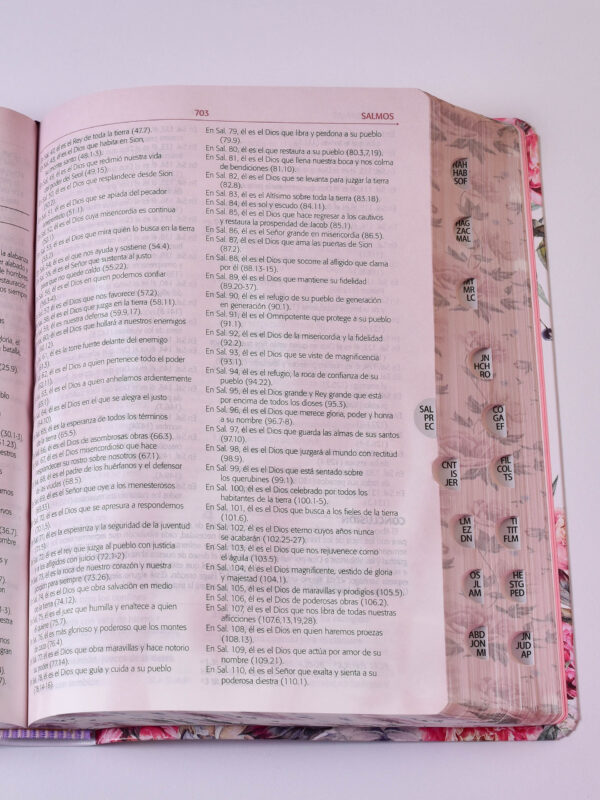 703
SALMOS
la alabanza
er alabado
de hombre
estauración
os siempre
gloria, él
batalla,
(25.9)
(30.1-3)
(51.23)
(36.7)
47, él es el Rey de toda la tierra (47.7).
48, él es el Dios que habita en Sion,
monte santo (48.1-3).
él es el Dios que redimió nuestra vida
poder del Seol (49.15).
él es el Dios que resplandece desde Sion
él es el Dios que se apiada del pecador
(51.1).
él es el Dios cuya misericordia es continua
él es el Dios que mira quién lo busca en la tierra
él es el que nos ayuda y sostiene (54.4).
él es el Señor que sustenta al justo
que no quede caído (55.22).
él es el Dios en quien podemos confiar
él es el Dios que nos favorece (57.2).
él es el Dios que juzga en la tierra (58.11).
59, él es nuestra defensa (59.9,17).
60, él es el Dios que hollará a nuestros enemigos
él es la torre fuerte delante del enemigo
él es el Dios a quien pertenece todo el poder
él es el Dios a quien anhelamos ardientemente
él es el Dios en el que se alegra el justo
él es la esperanza de todos los términos
la tierra (65.5).
él es el Dios de asombrosas obras (66.3).
él es el Dios misericordioso que hace
resplandecer su rostro sobre nosotros (67.1).
68, él es el padre de huérfanos y el defensor
de viudas (68.5).
69, él es el Señor que oye a los menesterosos
70, él es el Dios que se apresura a respondernos
71, él es la esperanza y la seguridad de la juventud
72, él es el rey que juzga al pueblo con justicia
afligidos con juicio (72.2-3)
él es la roca de nuestro corazón y nuestra
porción para siempre (73.26).
74, él es el Dios que obra salvación en medio
de la tierra (74.12).
75, él es el juez que humilla y enaltece a quien
quiere (75.7).
76, él es más glorioso y poderoso que los montes
de caza (76.4).
77, él es el Dios que obra maravillas y hace notorio
su poder (77.14).
78, él es el Dios que guía y cuida a su pueblo
(78.14-16).
En Sal. 79, él es el Dios que libra y perdona a su pueblo
(79.9).
En Sal. 80, él es el que restaura a su pueblo (80.3,7,19).
En Sal. 81, él es el Dios que llena nuestra boca y nos colma
de bendiciones (81.10).
En Sal. 82, él es el Dios que se levanta para juzgar la tierra
(82.8).
En Sal. 83, él es el Altísimo sobre toda la tierra (83.18).
En Sal. 84, él es sol y escudo (84.11).
En Sal. 85, él es el Dios que hace regresar a los cautivos
y restaura la prosperidad de Jacob (85.1).
En Sal. 86, él es el Señor grande en misericordia (86.5).
En Sal. 87, él es el Dios que ama las puertas de Sion
(87.2).
En Sal. 88, él es el Dios que socorre al afligido que clama
por él (88.13-15).
En Sal. 89, él es el Dios que mantiene su fidelidad
(89.20-37).
En Sal. 90, él es el refugio de su pueblo de generación
en generación (90.1).
En Sal. 91, él es el Omnipotente que protege a su pueblo
(91.1).
En Sal. 92, él es el Dios de la misericordia y la fidelidad
(92.2).
En Sal. 93, él es el Dios que se viste de magnificencia
(93.1).
En Sal. 94, él es el refugio, la roca de confianza de su
pueblo (94.22).
En Sal. 95, él es el Dios grande y Rey grande que está
por encima de todos los dioses (95.3).
En Sal. 96, él es el Dios que merece gloria, poder y honra
a su nombre (96.7-8).
En Sal. 97, él es el Dios que guarda las almas de sus santos
(97.10).
En Sal. 98, él es el Dios que juzgará al mundo con rectitud
(98.9).
En Sal. 99, él es el Dios que está sentado sobre
los querubines (99.1).
En Sal. 100, él es el Dios celebrado por todos los
habitantes de la tierra (100.1-5).
En Sal. 101, él es el Dios que busca a los fieles de la tierra
(101.6).
En Sal. 102, él es el Dios eterno cuyos años nunca
se acabarán (102.25-27).
En Sal. 103, él es el Dios que nos rejuvenece como
el águila (103.5).
En Sal. 104, él es el Dios magnificente, vestido de gloria
y majestad (104.1).
En Sal. 105, él es el Dios de maravillas y prodigios (105.5).
En Sal. 106, él es el Dios de poderosas obras (106.2).
En Sal. 107, él es el Dios que nos libra de todas nuestras
aflicciones (107.6,13,19,28).
En Sal. 108, él es el Dios en quien haremos proezas
(108.13).
En Sal. 109, él es el Dios que actúa por amor de su
nombre (109.21).
En Sal. 110, él es el Señor que exalta y sienta a su
poderosa diestra (110.1).
NAH
HAB
SOF
HAG
ZAC
MAL
MT
MR
LC
JN
HCH
RO
SAL
PR
EC
CO
GA
EF
CNT
IS
JER
FIL
COL
TS
LM
EZ
DN
TI
TIT
FLM
OS
JL
AM
HE
STG
PED
ABD
JON
MI
JN
JUD
AP